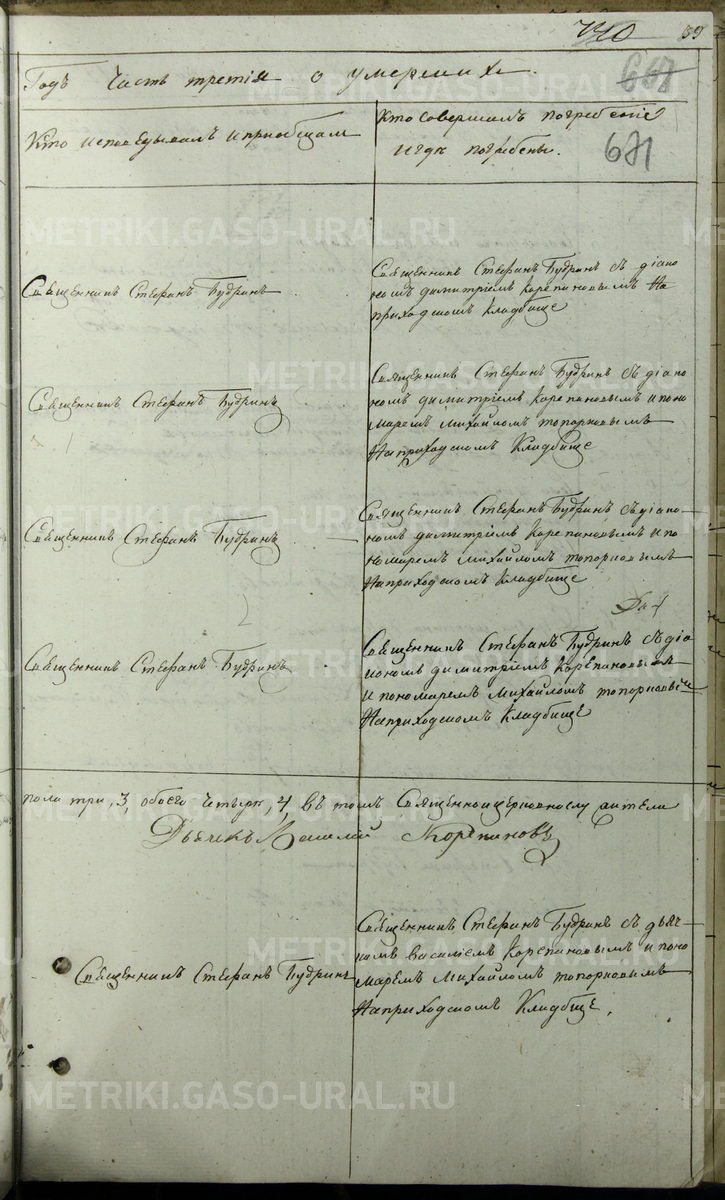 440 39
Годъ Часть третія о умершихъ 668
Кто исповедывалъ и приобщалъ
Кто совершалъ погребеніе
и где погребены. 671
Священникъ Стефанъ Будринъ
Священникъ Стефанъ Будринъ съ діако
номъ димитріемъ Корепановымъ На
приходскомъ Кладбище
Священникъ Стефанъ Будринъ
Священникъ Стефанъ Будринъ съ діако
номъ димитріемъ Корепановымъ и поно
маремъ Михайломъ топорковымъ
На приходскомъ Кладбище
Священникъ Стефанъ Будринъ
Священникъ Стефанъ Будринъ съ діако-
номъ димитріемъ Корепановымъ и по
номаремъ Михайломъ топорковымъ
На приходскомъ Кладбище
Священникъ Стефанъ Будринъ
Священникъ Стефанъ Будринъ съ діа
кономъ димитріемъ Корепановымъ
и пономаремъ Михайломъ топорковым
На приходскомъ Кладбище
пола три, 3 обоего четыре, 4, въ томъ Священноицерковнослужители
Дьячекъ Василій Корепановъ
Священникъ Стефанъ Будринъ
Священникъ Стефанъ Будринъ съ дьяч-
комъ василіемъ Корепановымъ и поно
маремъ Михайломъ топорковымъ
На приходскомъ Кладбище.
METRIKI.GASO-URAL.RU